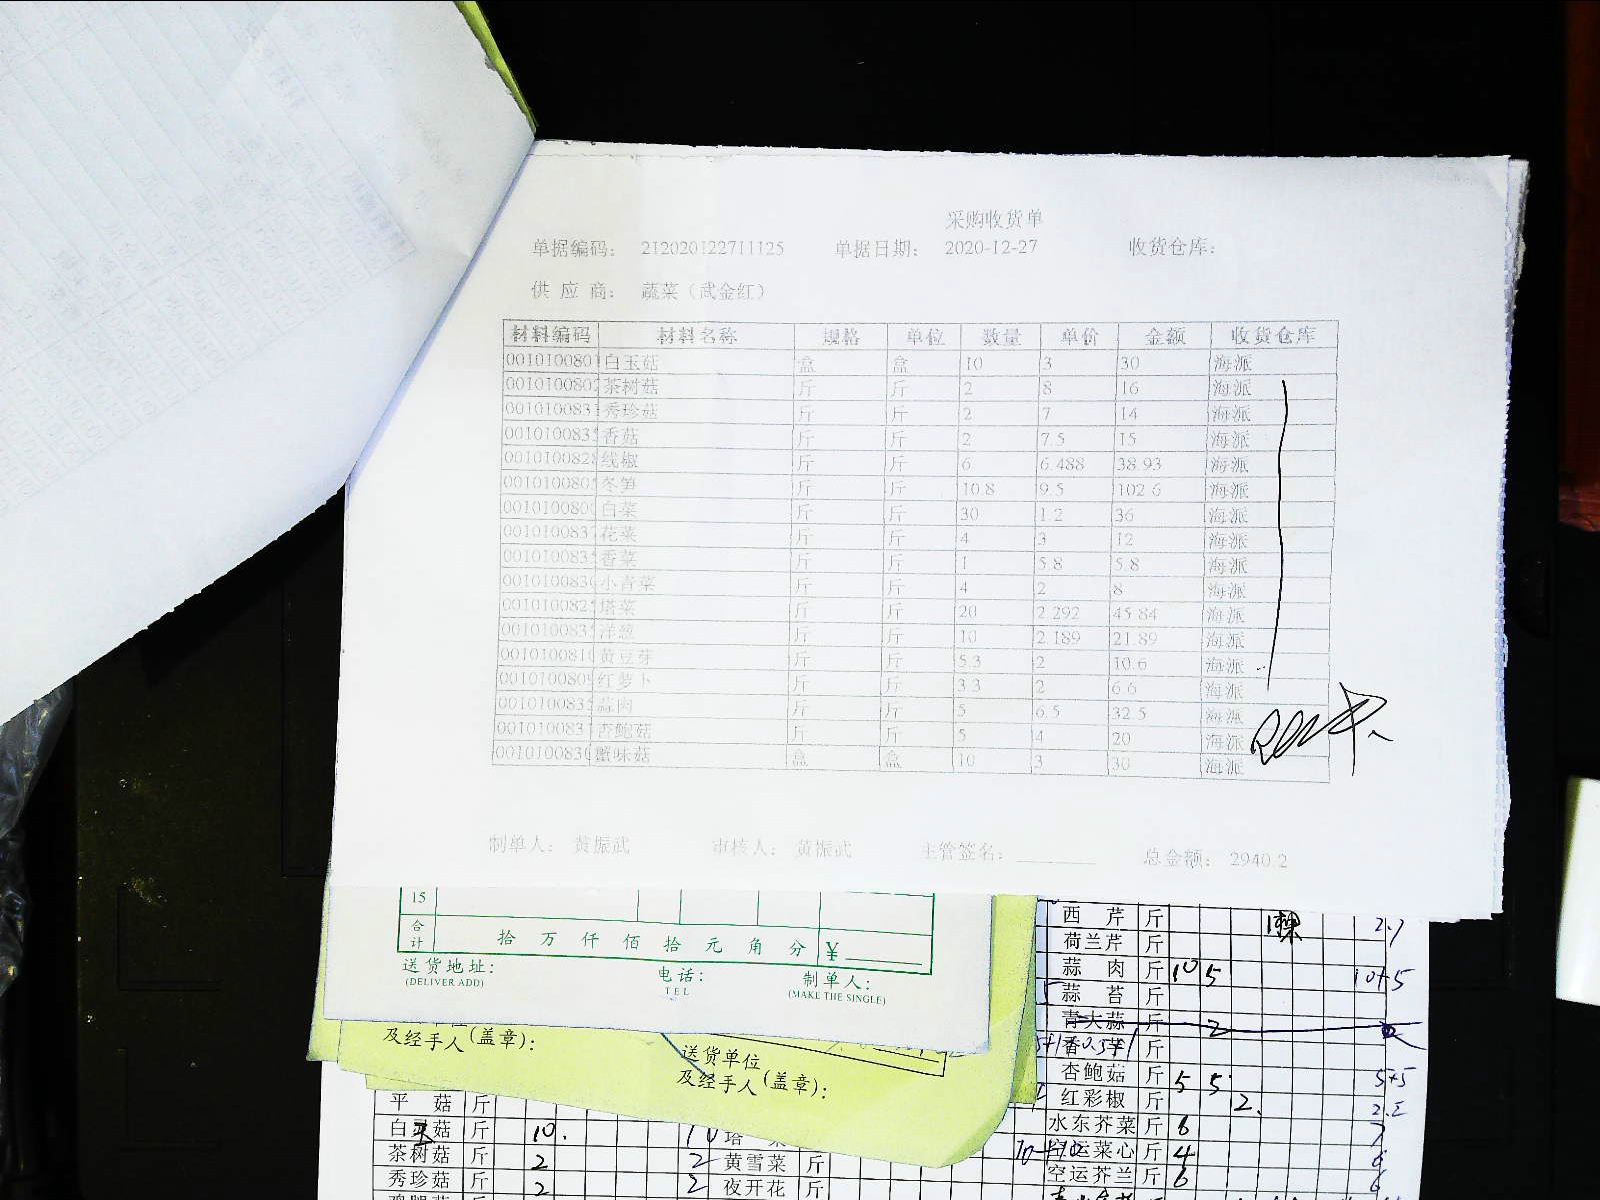 采购收货单
单据编码： 212020122711125 单据日期： 2020-12-27 收货仓库：
供 应 商： 蔬菜（武金红）
材料编码 材料名称 规格 单位 数量 单价 金额 收货仓库
0010100801 白玉菇 盒 盒 10 3 30 海派
0010100802 茶树菇 斤 斤 2 8 16 海派
001010083 秀珍菇 斤 斤 2 7 14 海派
001010083 香菇 斤 斤 2 7.5 15 海派
001010082 线椒 斤 斤 6 6.488 38.93 海派
001010080 冬笋 斤 斤 10.8 9.5 102.6 海派
001010080 白菜 斤 斤 30 1.2 36 海派
001010083 花菜 斤 斤 4 3 12 海派
001010083 香菜 斤 斤 1 5.8 5.8 海派
001010083 小青菜 斤 斤 4 2 8 海派
001010082 塔菜 斤 斤 20 2.292 45.84 海派
001010083 洋葱 斤 斤 10 2.189 21.89 海派
001010081 黄豆芽 斤 斤 5.3 2 10.6 海派
001010080 红萝卜 斤 斤 3.3 2 6.6 海派
001010083 蒜肉 斤 斤 5 6.5 32.5 海派
001010083 杏鲍菇 斤 斤 5 4 20 海派
001010083 蟹味菇 盒 盒 10 3 30 海派
制单人： 黄振武 审核人： 黄振武 主管签名： 总金额： 2940.2
15
合计 拾 万 仟 佰 拾 元 角 分 ¥
送货地址： 电话： 制单人：
(DELIVER ADD) TEL (MAKE THE SINGLE)
及经手人(盖章)：
送货单位
及经手人(盖章)：
西 芹 斤 1棵
荷兰芹 斤
蒜 肉 斤 10 5 10+5
蒜 苔 斤
青大蒜 斤 2
香 芋 斤
杏鲍菇 斤 5 5 5+5
红彩椒 斤 2.
水东芥菜 斤 6 7
空运菜心 斤 4 6
空运芥兰 斤 6 6
平 菇 斤
白玉菇 斤 10. 10
茶树菇 斤 2 2 黄雪菜 斤
秀珍菇 斤 2 2 夜开花 斤